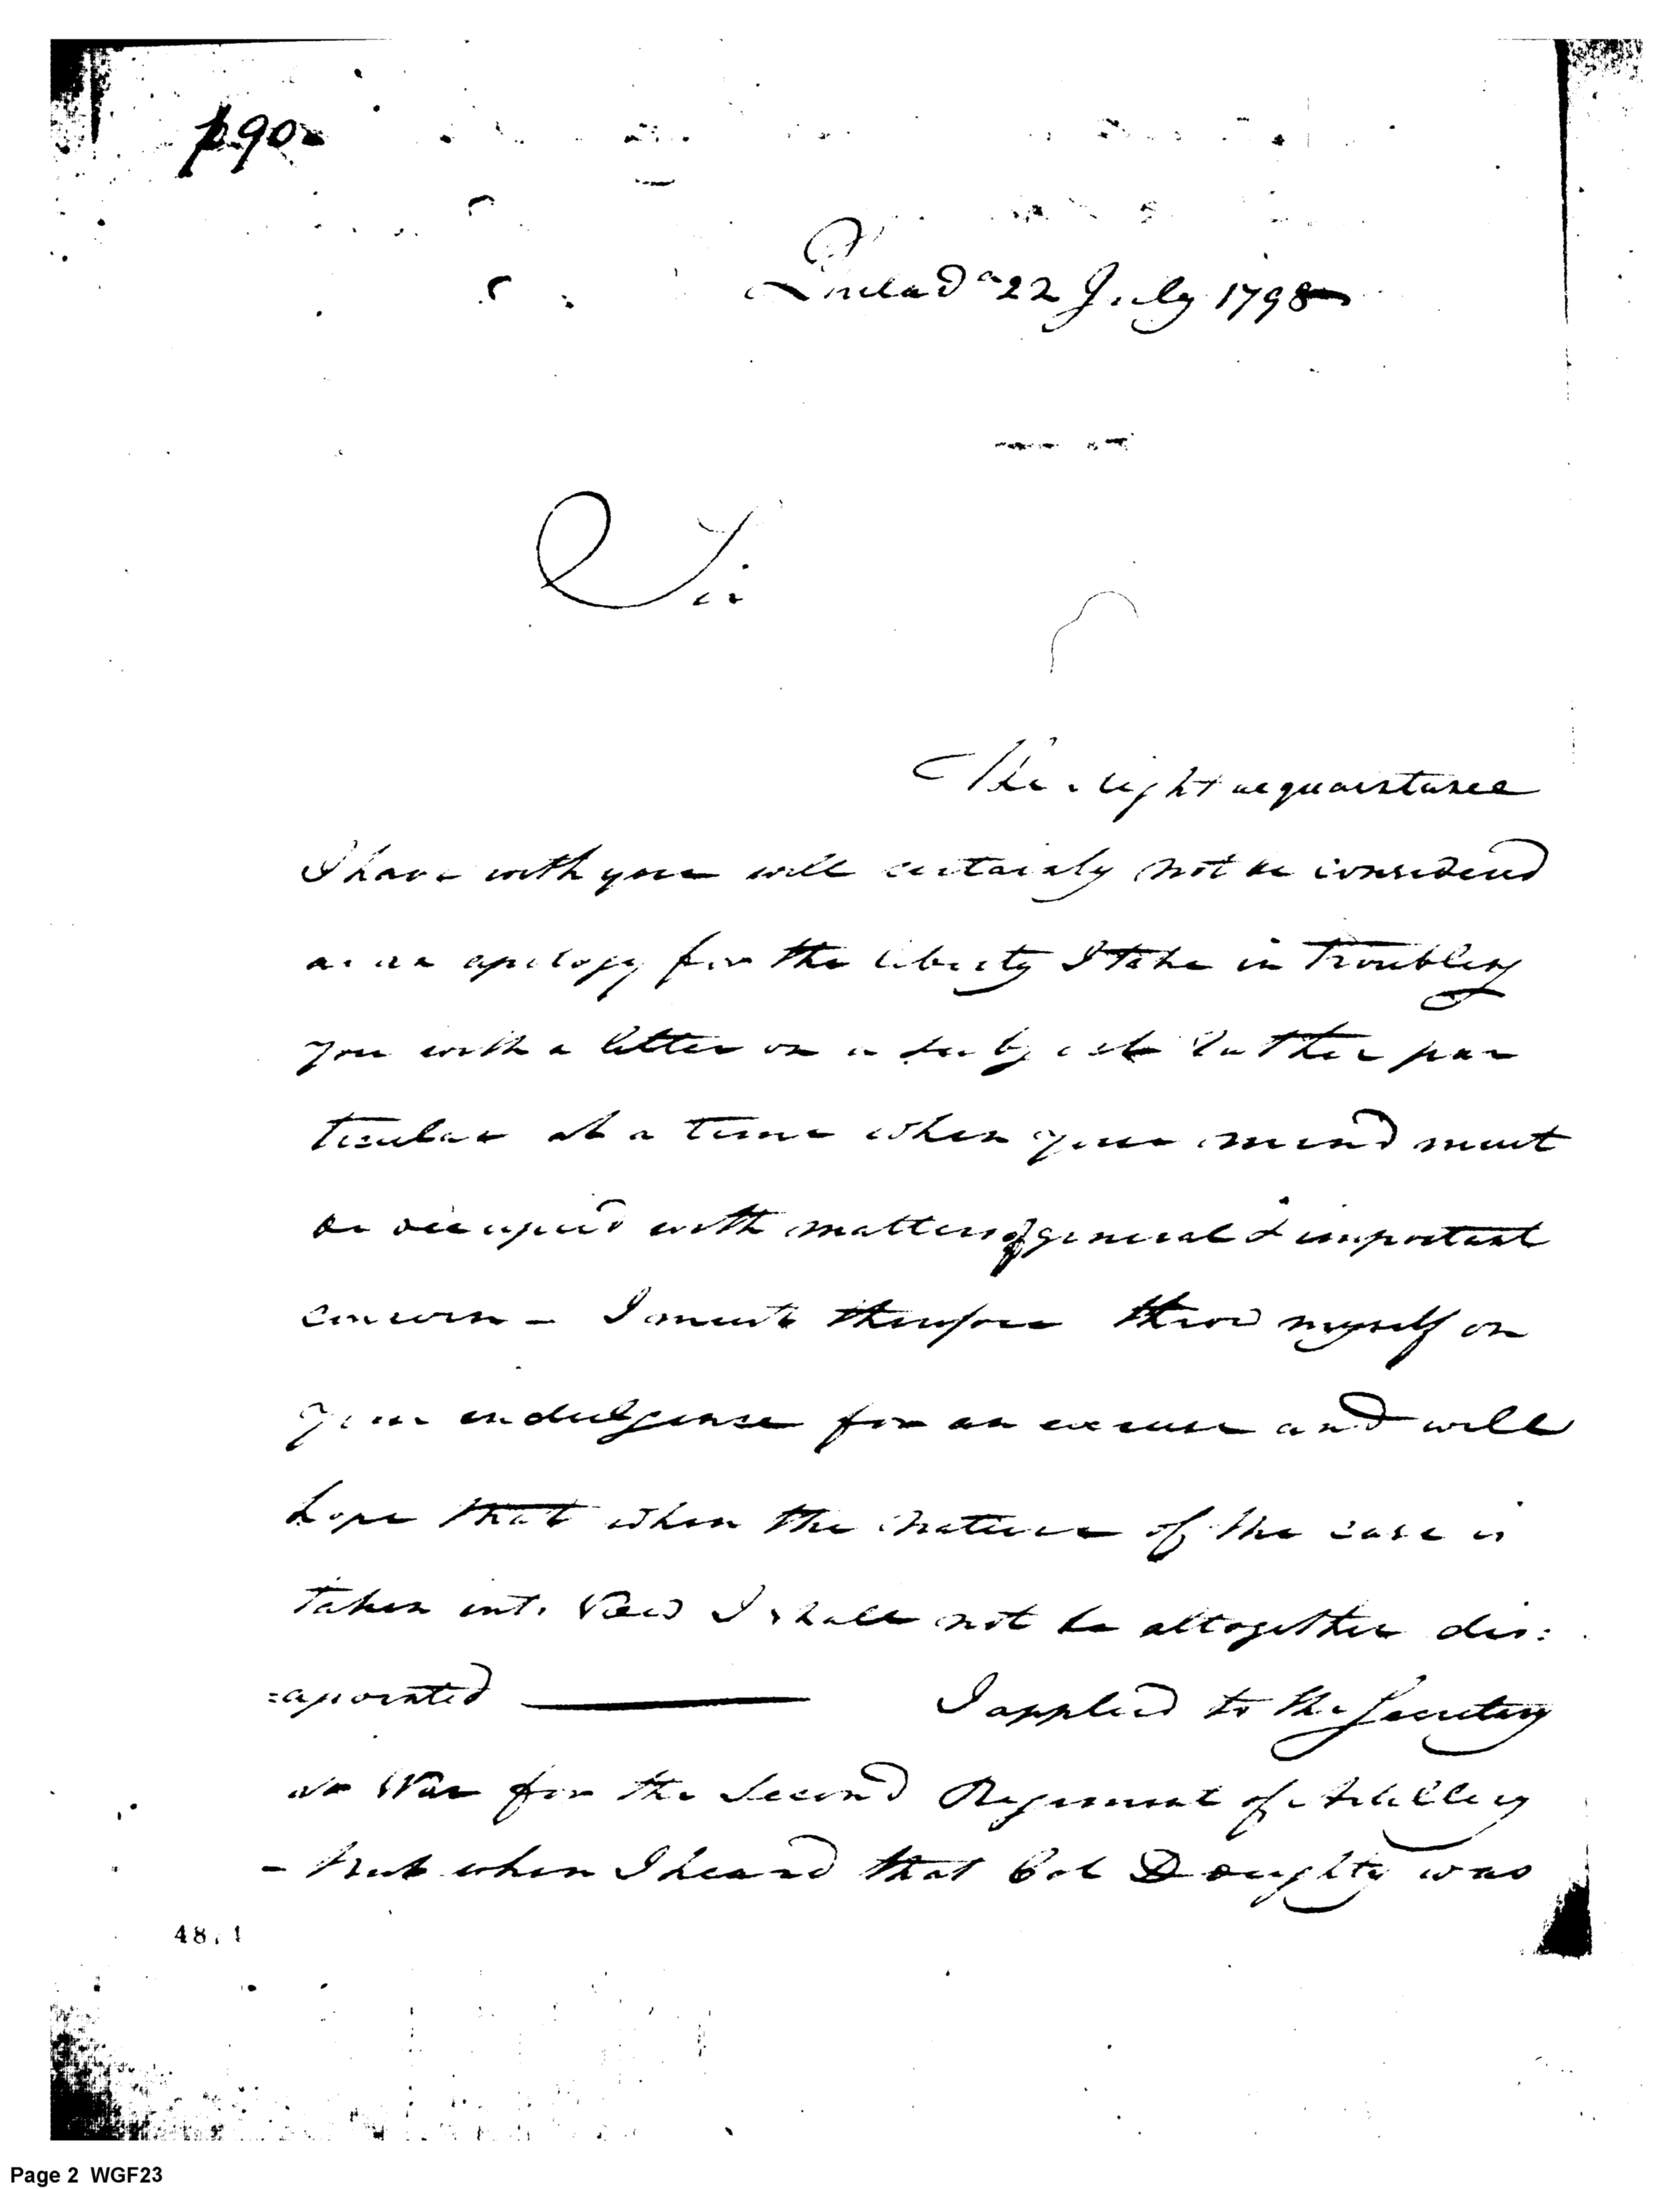 p90
Philad a 22 July 1798
Sir
The slight acquaintance
I have with you will certainly not be considered
as an apology for the liberty I take in troubling
you with a letter on a subject rather par
ticular at a time when your mind must
be occupied with matters of general & important
concern - I must therefore throw myself on
your indulgense for an excuse and will
hope that when the nature of the case is
taken into View I shall not be altogether dis:
=apointed — I applied to the Secretary
at War for the Second Regiment of Artillery
- but when I heard that Col Doughty was
Page 2 WGF23